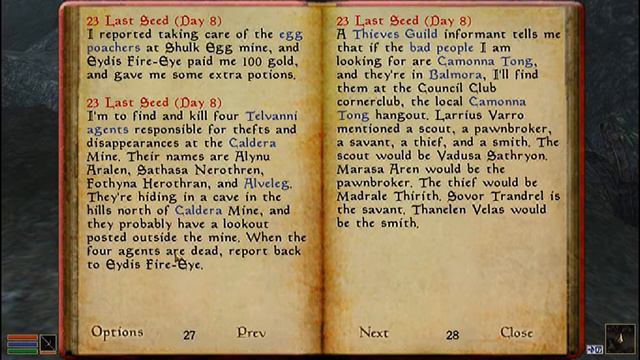 23 Last Seed (Day 8)
I reported taking care of the egg
poachers at Shulk Egg mine, and
Eydis Fire-Eye paid me 100 gold,
and gave me some extra potions.
23 Last Seed (Day 8)
I'm to find and kill four Telvanni
agents responsible for thefts and
disappearances at the Caldera
Mine. Their names are Alynu
Aralen, Sathasa Nerothren,
Fothyna Herothran, and Alveleg.
They're hiding in a cave in the
hills north of Caldera Mine, and
they probably have a lookout
posted outside the mine. When the
four agents are dead, report back
to Eydis Fire-Eye.
23 Last Seed (Day 8)
A Thieves Guild informant tells me
that if the bad people I am
looking for are Camonna Tong,
and they're in Balmora, I'll find
them at the Council Club
cornerclub, the local Camonna
Tong hangout. Larrius Varro
mentioned a scout, a pawnbroker,
a savant, a thief, and a smith. The
scout would be Vadusa Sathryon.
Marasa Aren would be the
pawnbroker. The thief would be
Madrale Thirith. Sovor Trandrel is
the savant. Thanelen Velas would
be the smith.
Options 27 Prev Next 28 Close